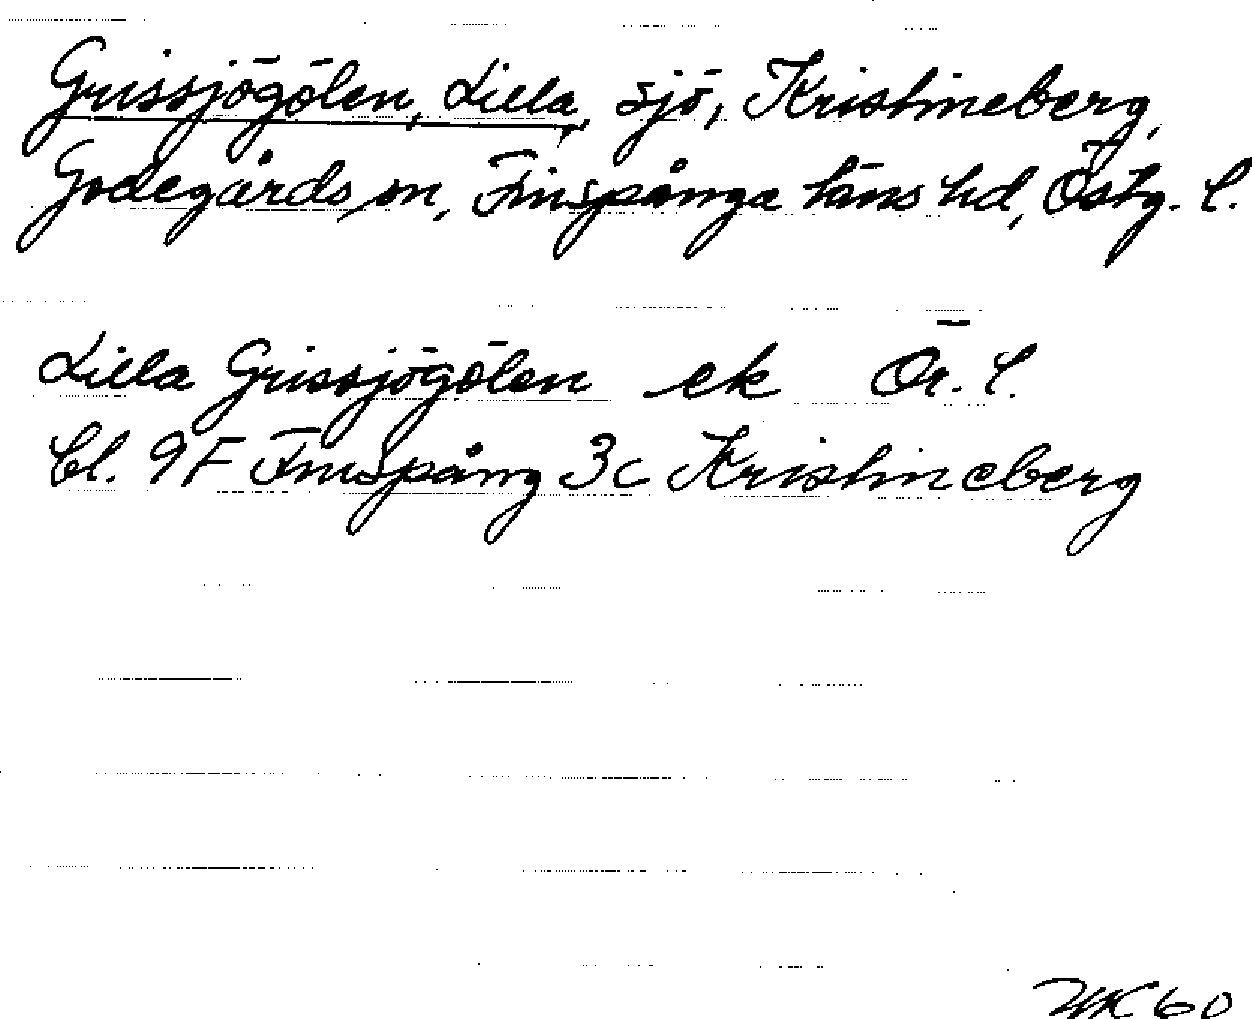 Grissjögölen, Lilla, sjö, Kristineberg,
Godegårds sn, Finspånga läns hd, Östg. l.
Lilla Grissjögölen ek Ör. l.
Bl. 9F Finspång 3c Kristineberg